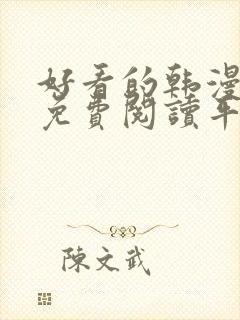 好看的韩漫
免費閱讀平
陳文武